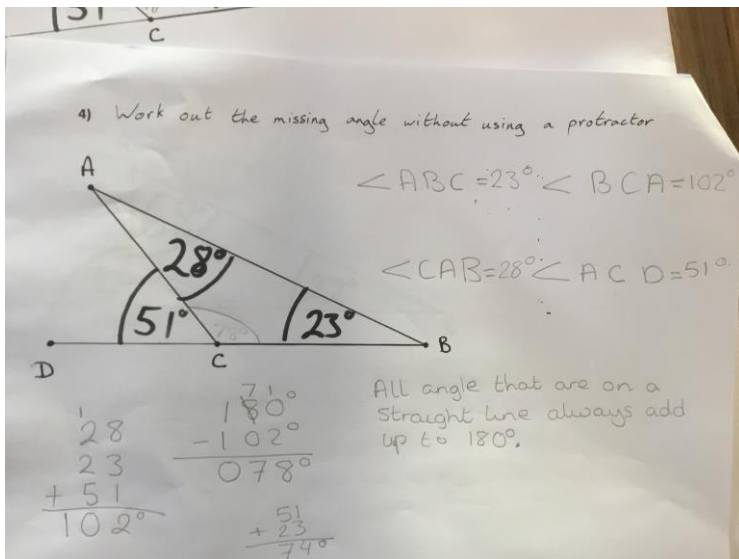 51
C
4) Work out the missing angle without using a protractor
A
<ABC=23° <BCA=102°
28°
<CAB=28° <ACD=51°
51°
78°
23°
D
C
B
All angle that are on a
straight line always add
up to 180°.
1
28
23
+ 51
102°
7 1
180°
-102°
078°
51
+ 23
74°